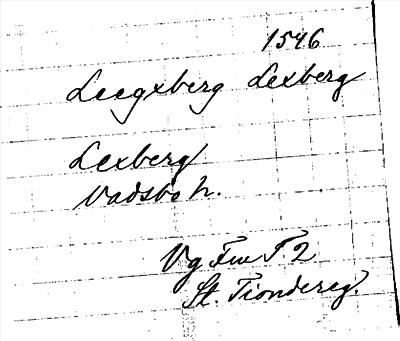 1546
Leegxberg Lexberg
Lexberg
Vadsbo h.
Vg Fm T. 2
St. Tiondereg.